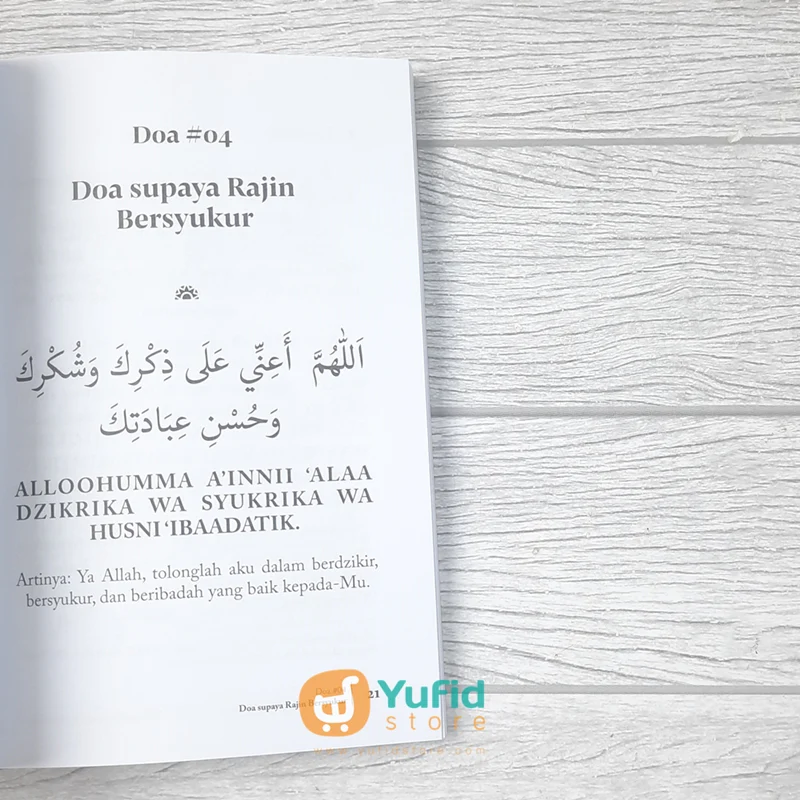 Doa #04
Doa supaya Rajin
Bersyukur
اَللّٰهُمَّ أَعِنِّي عَلَى ذِكْرِكَ وَشُكْرِكَ
وَحُسْنِ عِبَادَتِكَ
ALLOOHUMMA A'INNII 'ALAA
DZIKRIKA WA SYUKRIKA WA
HUSNI 'IBAADATIK.
Artinya: Ya Allah, tolonglah aku dalam berdzikir,
bersyukur, dan beribadah yang baik kepada-Mu.
Doa
Doa supaya Rajin Bersyukur
21
Yufid
store
www.yufidstore.com